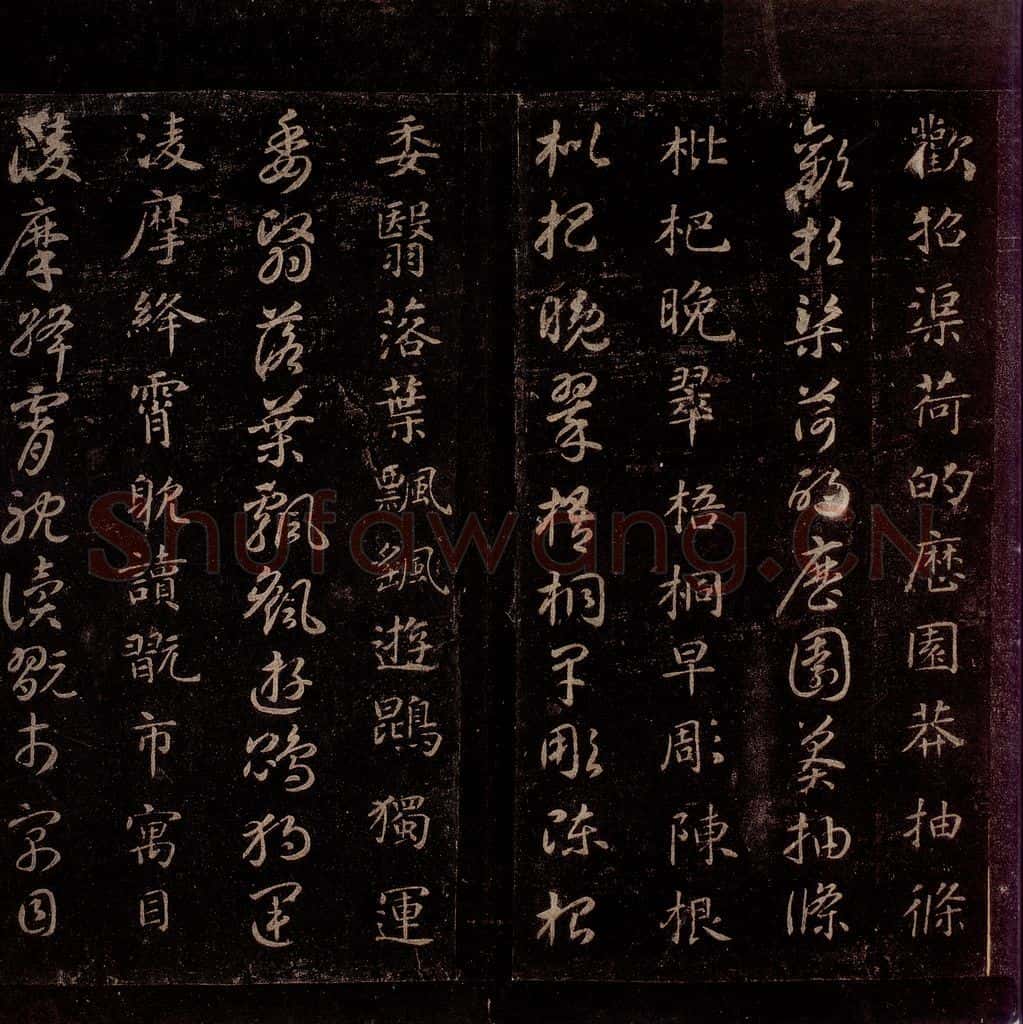 歡招渠荷的歷園莽抽條
歡招渠荷的歷園莽抽條
枇杷晚翠梧桐早彫陳根
枇杷晚翠梧桐早彫陳根
委翳落葉飄颻遊鵾獨運
委翳落葉飄颻遊鵾獨運
凌摩絳霄耽讀翫市寓目
凌摩絳霄耽讀翫市寓目
Shufawang.CN